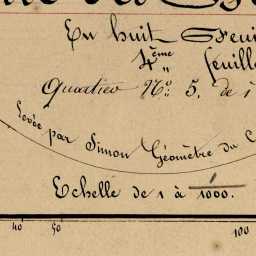 En huit Feui
4ème feuille
Quartier No. 5. de 1
Levée par Simon Géomètre du C
Echelle de 1 à 1/1000.
40 50 100